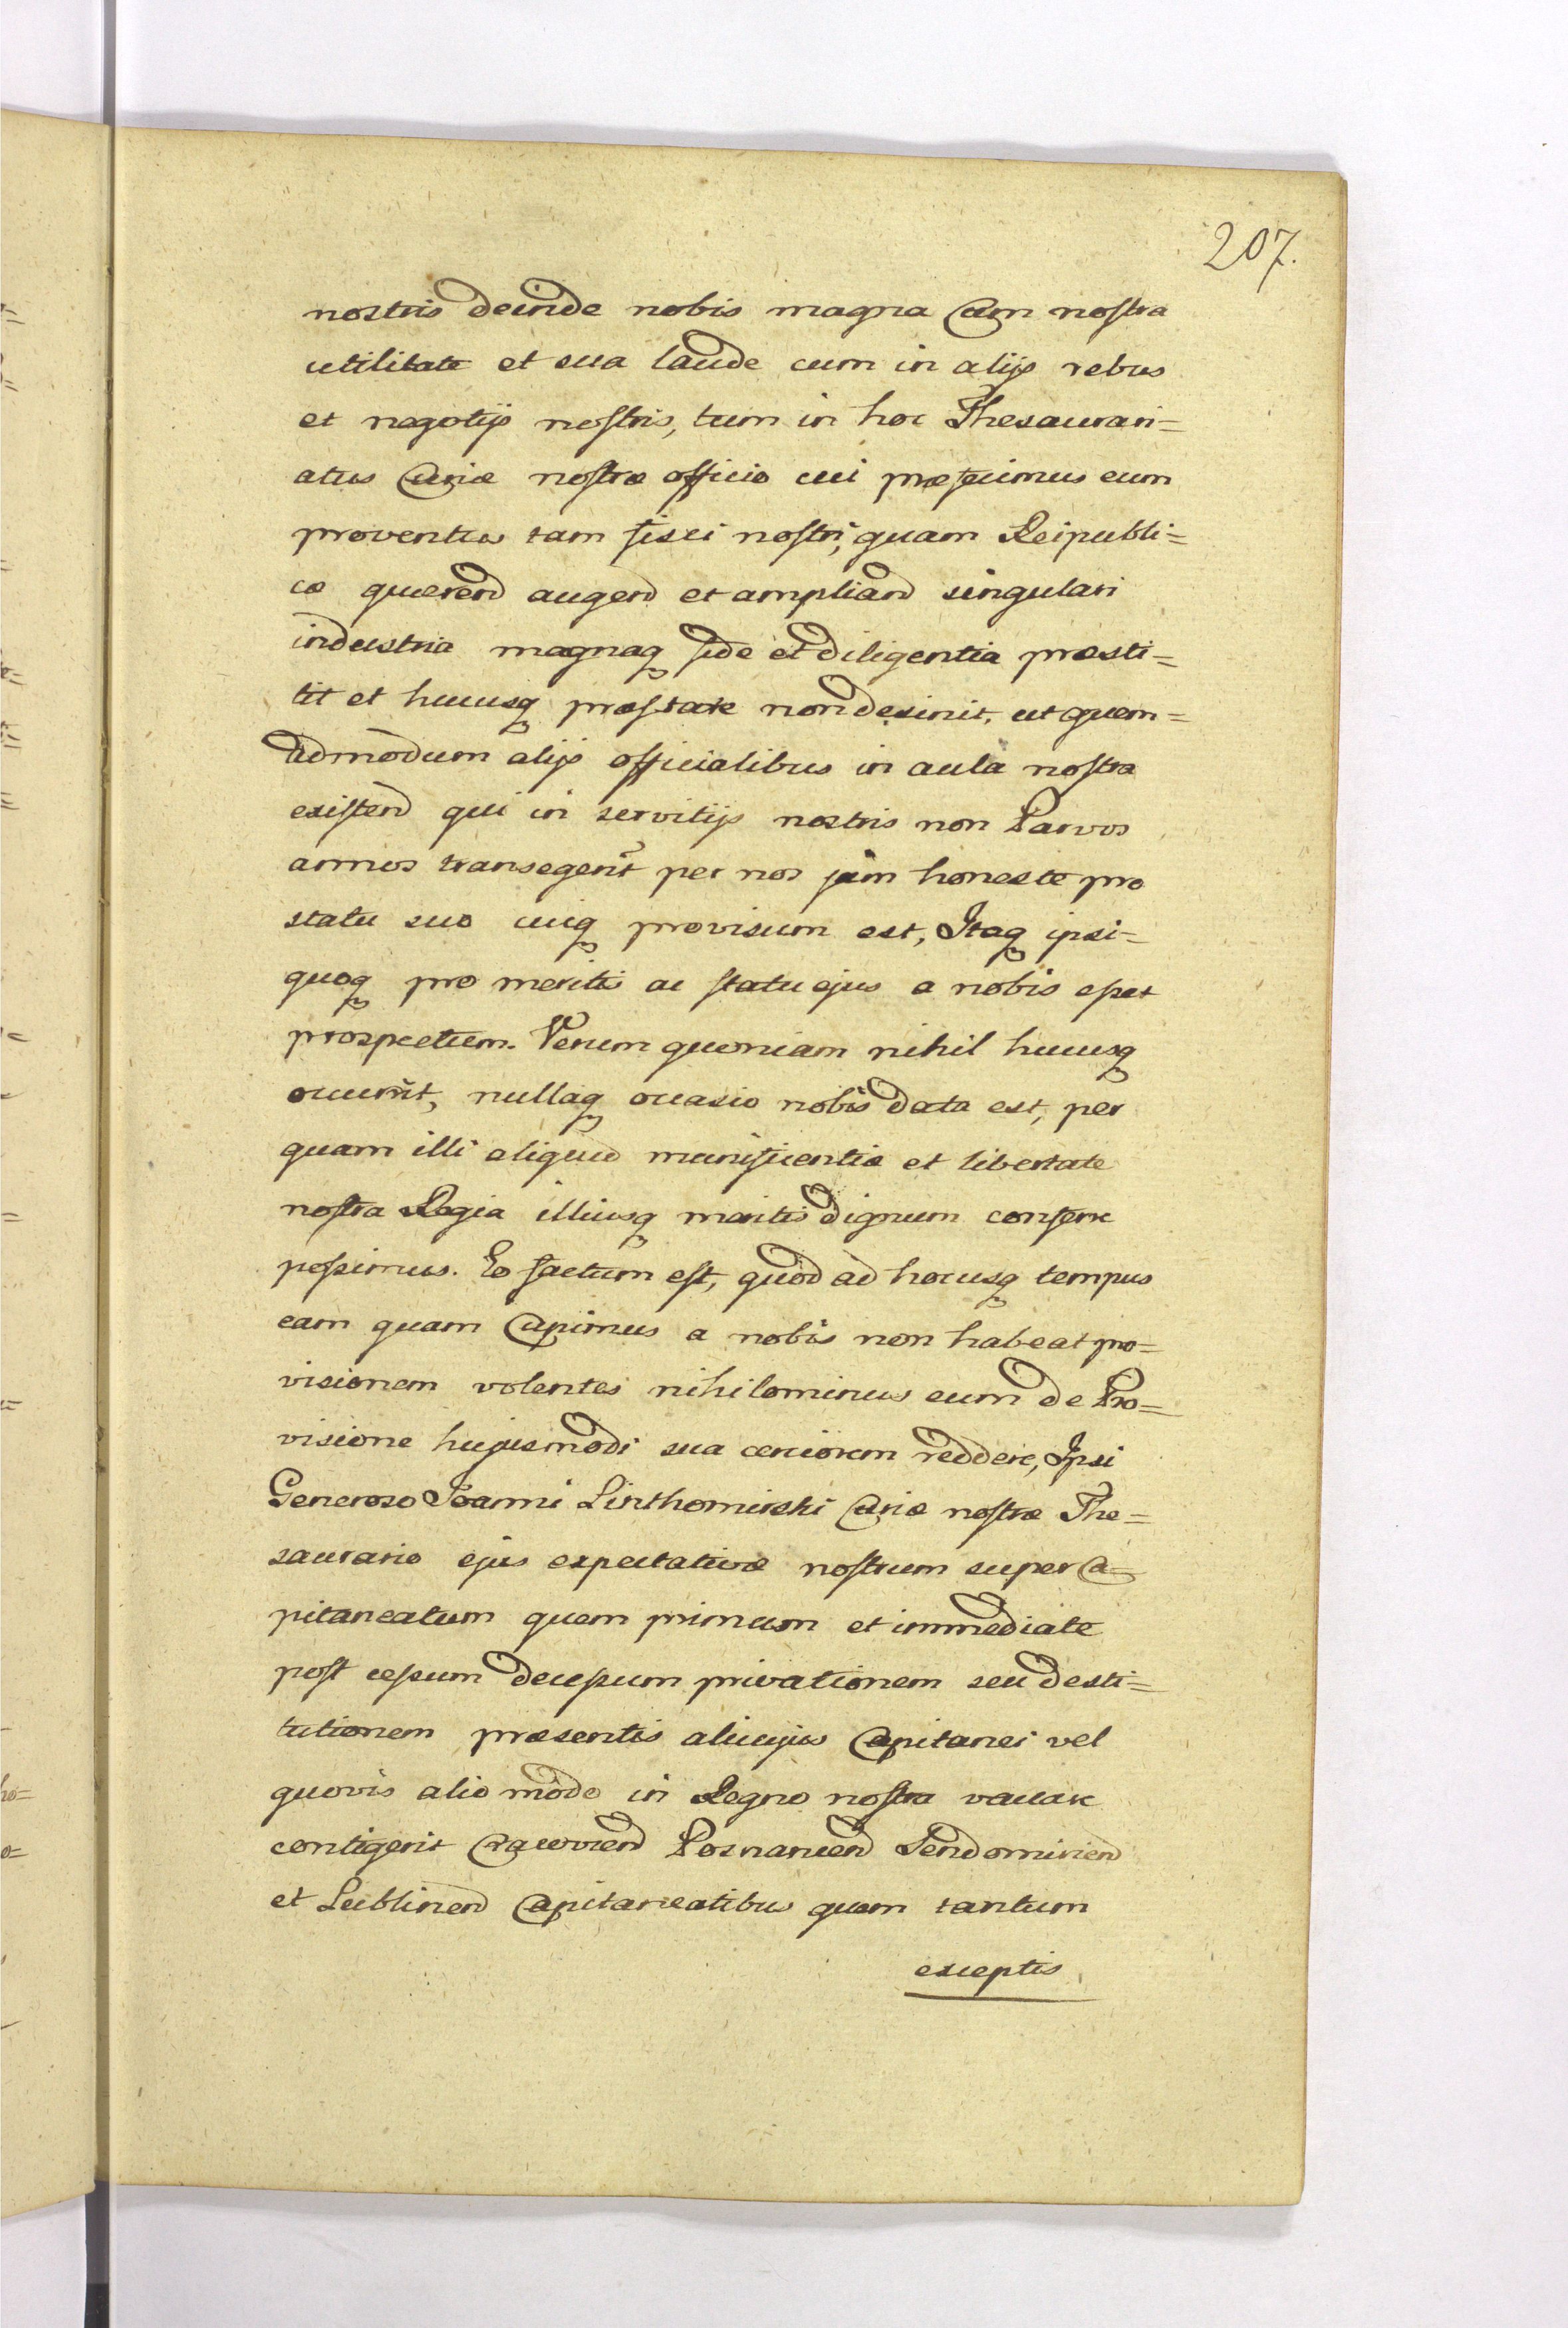 207.
nostris deinde nobis magna Cum nostra
utilitate et sua laude cum in alijs rebus
et negotijs nostris, tum in hoc Thesaurari=
atus Curiæ nostræ officio cui præfecimus eum
proventus tam fisci nostri, quam Reipubli=
cæ querend augend et ampliand singulari
industria magnaq fide et diligentia præsti=
tit et hucusq præstare non desinit, ut quem=
admodum alijs officialibus in aula nostra
existend qui in servitijs nostris non Parvos
annos transegerit per nos jam honeste pro
statu suo cuiq provisum est, Itaq ipsi=
quoq pro meritis ac statu ejus a nobis esset
prospectum. Verum quoniam nihil hucusq
occurrit, nullaq occasio nobis data est, per
quam illi aliquid munificentiæ et libertate
nostra Regia illiusq meritis dignum conferre
possimus. Eo factum est, quod ad hocusq tempus
eam quam Cupimus a nobis non habeat pro=
visionem volentes nihilominus eum de Pro=
visione hujusmodi sua certiorem reddere, Ipsi
Generoso Joanni Linthomirski Curiæ nostræ The=
saurario ejus expectativæ nostrum super Ca=
pitaneatum quem primum et immediate
post cessum decessum privationem seu desti=
tutionem præsentis alicujus Capitanei vel
quovis alio modo in Regno nostra vacare
contigerit Cracoviend Posnaniend Sendomiriend
et Lublinend Capitaneatibus quam tantum
exceptis